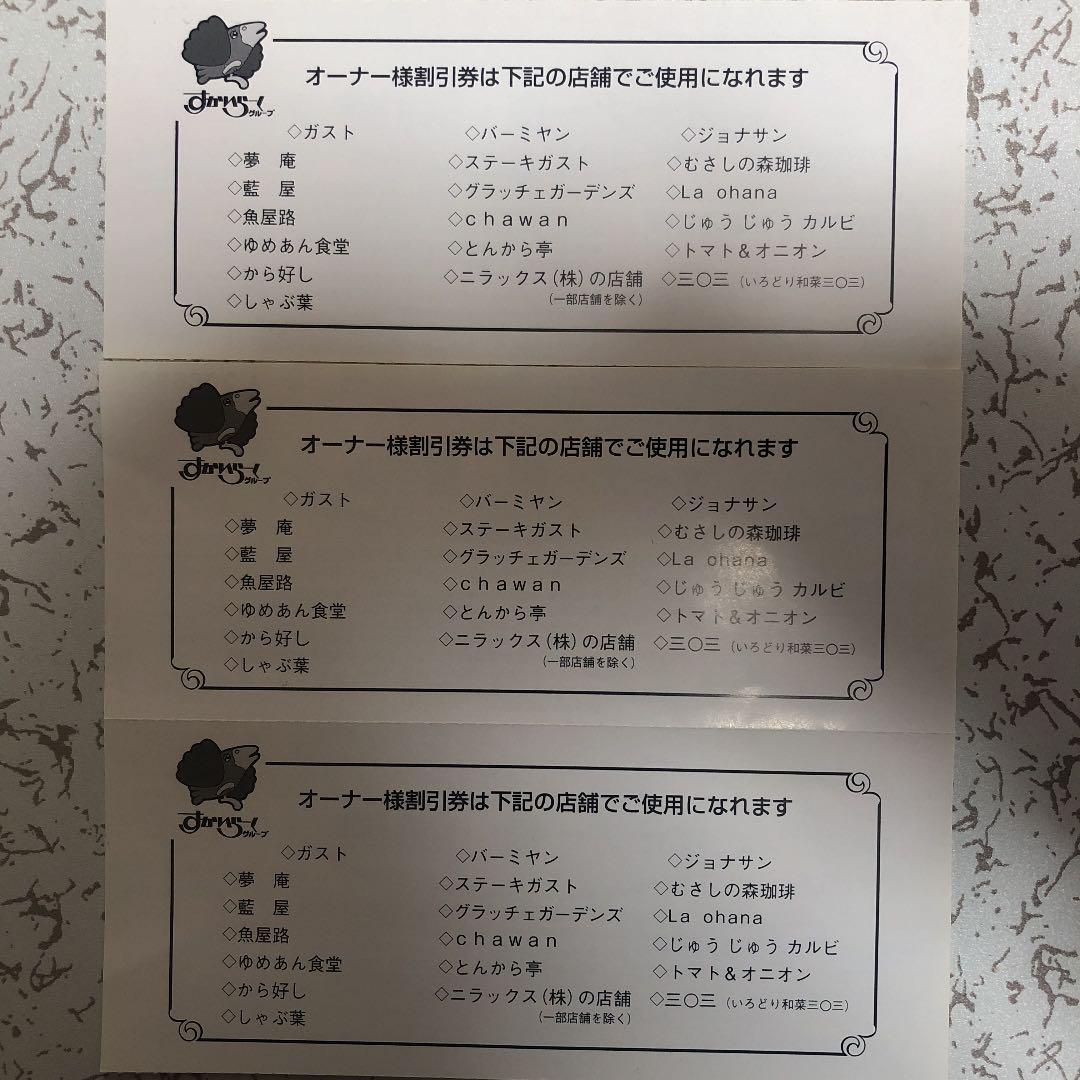 すかいらーく
グループ
オーナー様割引券は下記の店舗でご使用になれます
◇ガスト ◇バーミヤン ◇ジョナサン
◇夢　庵 ◇ステーキガスト ◇むさしの森珈琲
◇藍　屋 ◇グラッチェガーデンズ ◇La ohana
◇魚屋路 ◇chawan ◇じゅうじゅうカルビ
◇ゆめあん食堂 ◇とんから亭 ◇トマト＆オニオン
◇から好し ◇ニラックス(株)の店舗 ◇三〇三（いろどり和菜三〇三）
◇しゃぶ葉 （一部店舗を除く）
すかいらーく
グループ
オーナー様割引券は下記の店舗でご使用になれます
◇ガスト ◇バーミヤン ◇ジョナサン
◇夢　庵 ◇ステーキガスト ◇むさしの森珈琲
◇藍　屋 ◇グラッチェガーデンズ ◇La ohana
◇魚屋路 ◇chawan ◇じゅうじゅうカルビ
◇ゆめあん食堂 ◇とんから亭 ◇トマト＆オニオン
◇から好し ◇ニラックス(株)の店舗 ◇三〇三（いろどり和菜三〇三）
◇しゃぶ葉 （一部店舗を除く）
すかいらーく
グループ
オーナー様割引券は下記の店舗でご使用になれます
◇ガスト ◇バーミヤン ◇ジョナサン
◇夢　庵 ◇ステーキガスト ◇むさしの森珈琲
◇藍　屋 ◇グラッチェガーデンズ ◇La ohana
◇魚屋路 ◇chawan ◇じゅうじゅうカルビ
◇ゆめあん食堂 ◇とんから亭 ◇トマト＆オニオン
◇から好し ◇ニラックス(株)の店舗 ◇三〇三（いろどり和菜三〇三）
◇しゃぶ葉 （一部店舗を除く）